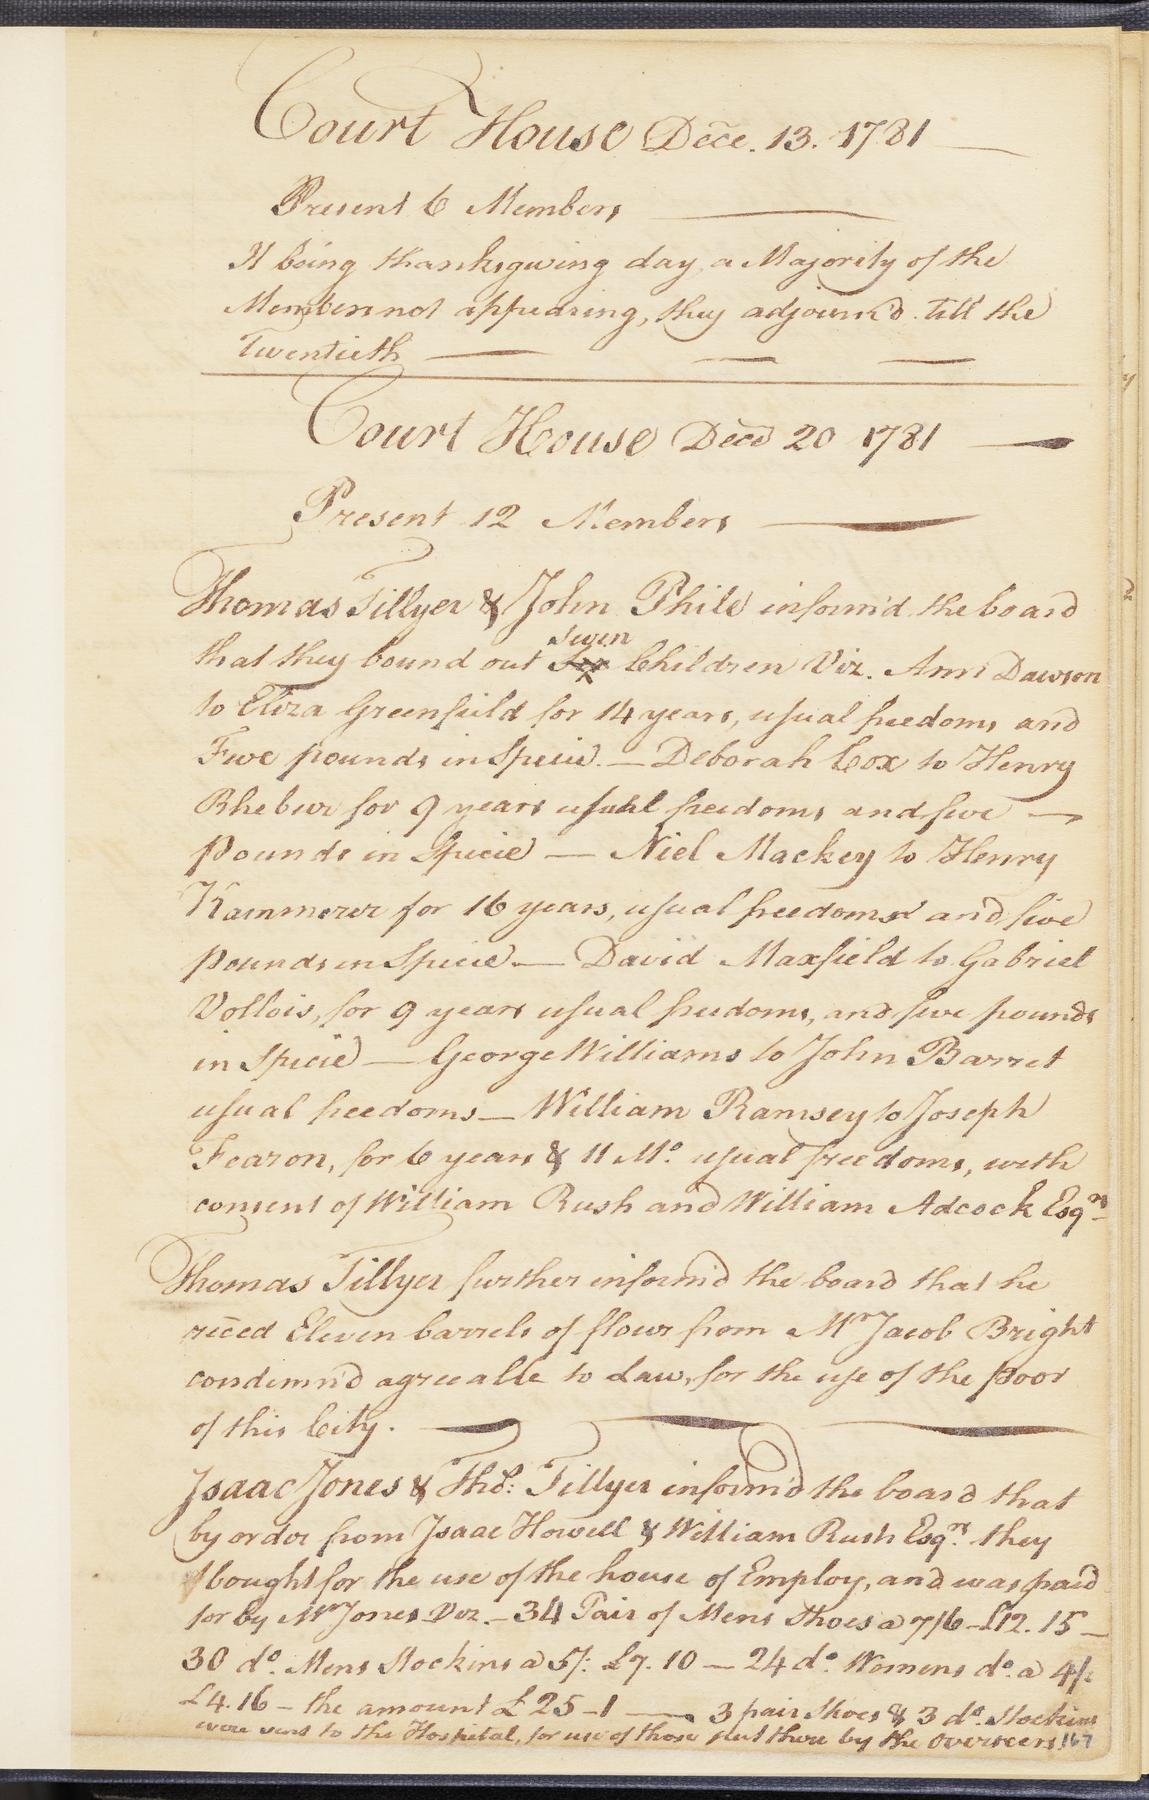 Court House Dece. 13. 1781
Present 6 Members
It being thanksgiving day a Majority of the
Members not appearing, they adjourn'd till the
Twentieth
Court House Decd 20 1781
Present 12 Members
Thomas Tillyer & John Phile inform'd the board
seven
that they bound out Six Children Viz. Ann Dawson
to Eliza Greenfield for 14 years, usual freedoms and
Five pounds in Specie. — Deborah Cox to Henry
Rhebur for 9 years usual freedoms and five
pounds in Specie — Niel Mackey to Henry
Kammerer for 16 years, usual freedoms and five
pounds in Specie — David Maxfield to Gabriel
Vollois, for 9 years usual freedoms, and five pounds
in Specie — George Williams to John Barret
usual freedoms — William Ramsey to Joseph
Fearon, for 6 years & 11 Mo. usual freedoms, with
consent of William Rush and William Adcock Esqrs
Thomas Tillyer further inform'd the board that he
reced Eleven barrels of flour from Mr Jacob Bright
condemn'd agreealle to Law, for the use of the poor
of this City.
Isaac Jones & Thos: Tillyer inform'd the board that
by order from Isaac Howell & William Rush Esqrs. they
bought for the use of the house of Employ, and was paid
for by Mr Jones Viz. — 34 Pair of Mens Shoes a 7/6 — £12. 15 —
30 do. Mens Stockins a 5/: £7. 10 — 24 do. Womens do. a 4/:
£4. 16 — the amount £25 — 1 — 3 pair Shoes & 3 do. Stockins
were sent to the Hospital, for use of those sent there by the Overseers.
167